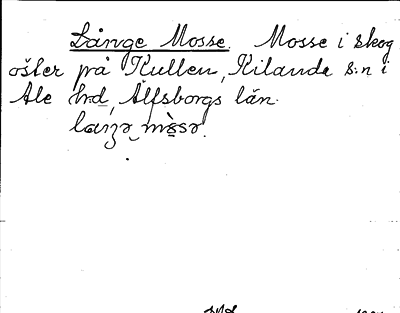 Långe Mosse. Mosse i skog
öster på Kullen, Kilanda s:n i
Ale hd, Älfsborgs län.